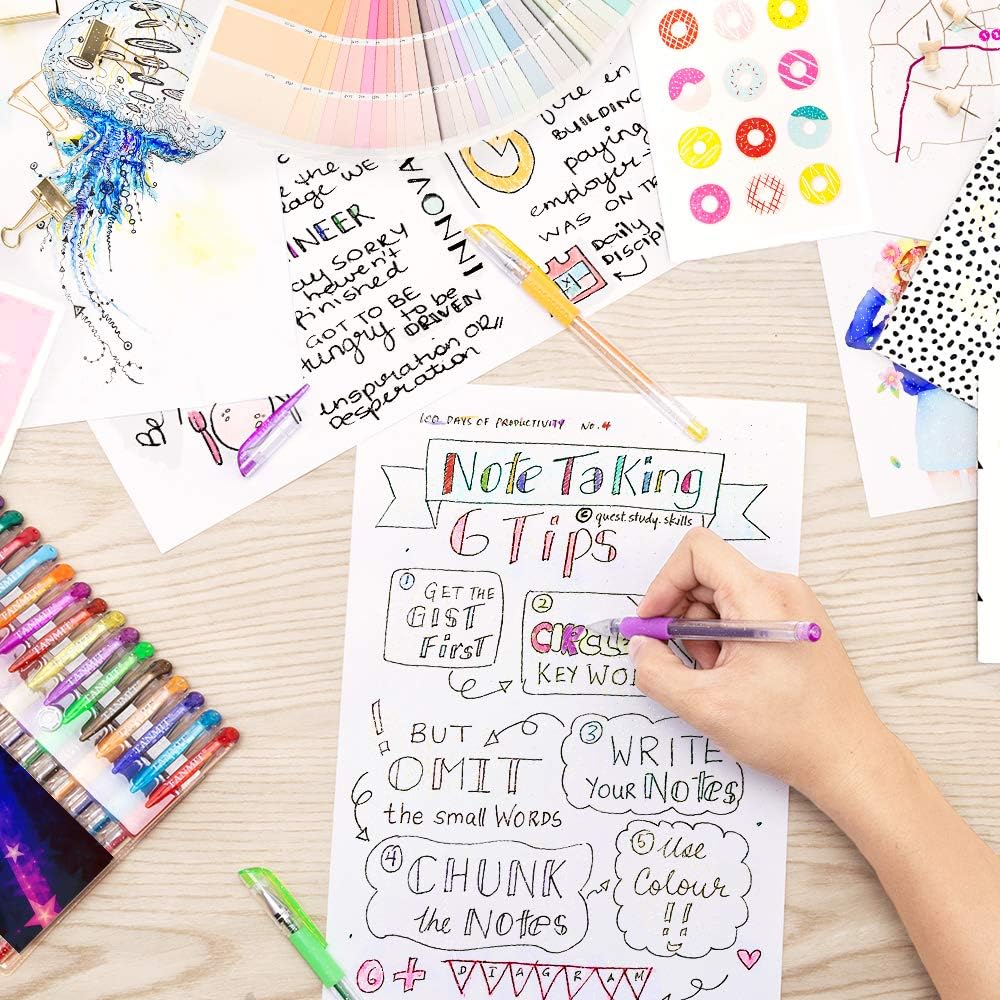 e the
eage WE
INEER
SORRY
haven't
finished
GOT TO BE
Hungry to be
DRIVEN
inspiration OR
Desperation
INNOVA
en
BUILDING
paying
employer
WAS ON TR
Daily
DISCIPL
Be
100 DAYS OF PRODUCTIVITY No. 4
Note Taking
© quest.study.skills
6 Tips
1 GET THE
GIST
First
2
CIRCLE
KEY WO
! BUT
OMIT
the small WORDS
3 WRITE
Your Notes
4 CHUNK
the Notes
5 Use
Colour
!!
6 + DIAGRAM
TANMIT
TANMIT
TANMIT
TANMIT
TANMIT
TANMIT
TANMIT